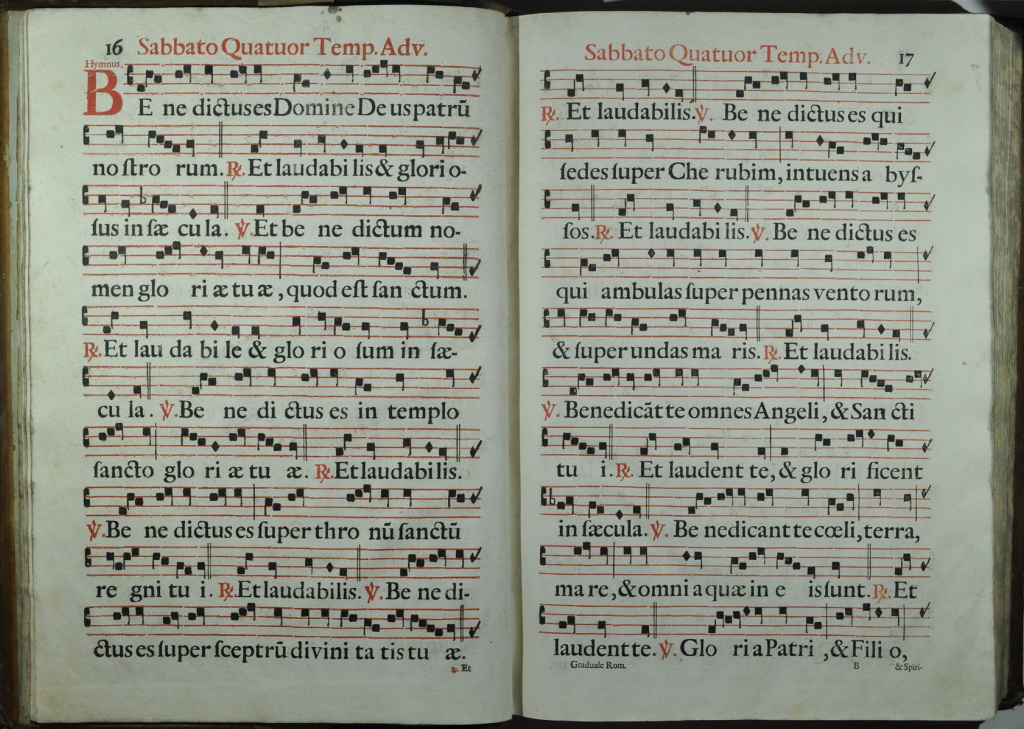 16 Sabbato Quatuor Temp. Adv.
Hymnus.
BE ne dictus es Domine De us patrũ
no ſtro rum. ℟. Et laudabi lis & glori o-
ſus in ſæ cu la. ℣. Et be ne dictum no-
men glo ri æ tu æ, quod eſt ſan ctum.
℟. Et lau da bi le & glo ri o ſum in ſæ-
cu la. ℣. Be ne di ctus es in templo
ſancto glo ri æ tu æ. ℟. Et laudabi lis.
℣. Be ne dictus es ſuper thro nũ ſanctũ
re gni tu i. ℟. Et laudabilis. ℣. Be ne di-
ctus es ſuper ſceptrũ divini ta tis tu æ.
℟. Et
Sabbato Quatuor Temp. Adv. 17
℟. Et laudabilis. ℣. Be ne dictus es qui
ſedes ſuper Che rubim, intuens a byſ-
ſos. ℟. Et laudabi lis. ℣. Be ne dictus es
qui ambulas ſuper pennas vento rum,
& ſuper undas ma ris. ℟. Et laudabi lis.
℣. Benedicãt te omnes Angeli, & San cti
tu i. ℟. Et laudent te, & glo ri ficent
in ſæcula. ℣. Be nedicant te cœli, terra,
ma re, & omni a quæ in e is ſunt. ℟. Et
laudent te. ℣. Glo ri a Patri , & Fili o,
Graduale Rom. B & Spiri-